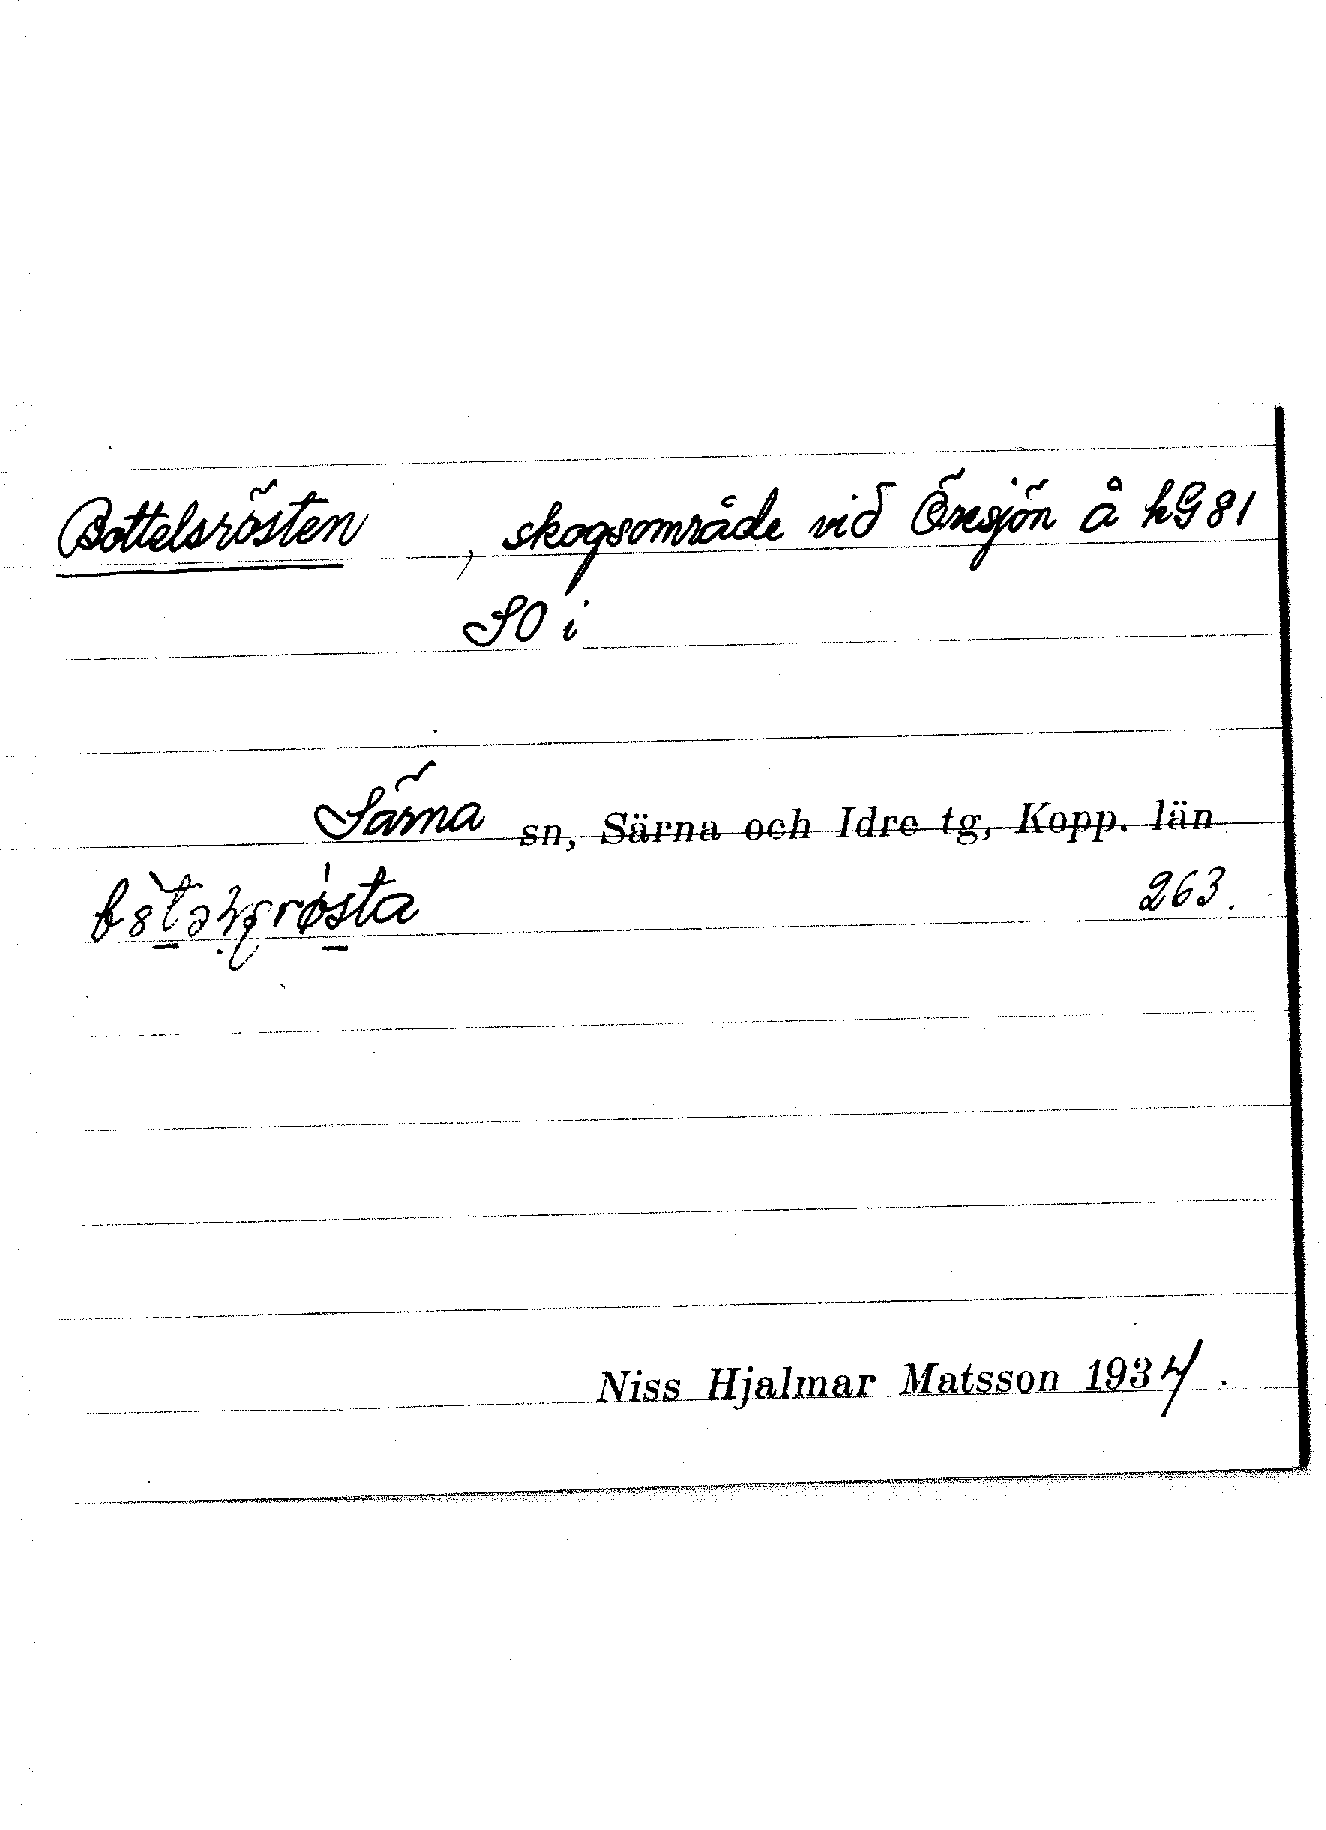 Bottelsrösten , skogsområde vid Öresjön å kG 81
SO i
Särna sn, Särna och Idre tg, Kopp. län
263.
Niss Hjalmar Matsson 1934.